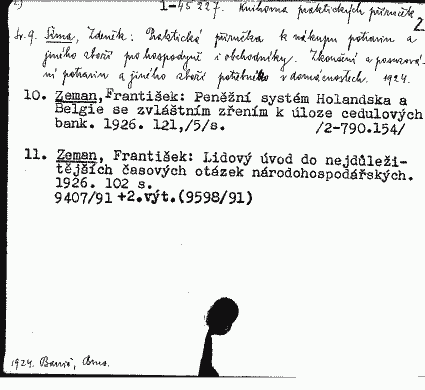 1-45 227. Knihovna praktických příruček
2.
Sv. 9. Šíma, Zdeněk: Praktická příručka k nákupu potravin a
jiného zboží pro hospodyně i obchodníky. Zkoušení a posuzová-
ní potravin a jiného zboží potřebného v domácnostech. 1924.
10. Zeman, František: Peněžní systém Holandska a
Belgie se zvláštním zřením k úloze cedulových
bank. 1926. 121,/5/s. /2-790.154/
11. Zeman, František: Lidový úvod do nejdůleži-
tějších časových otázek národohospodářských.
1926. 102 s.
9407/91 +2.výt.(9598/91)
1924. Barvič, Brno.